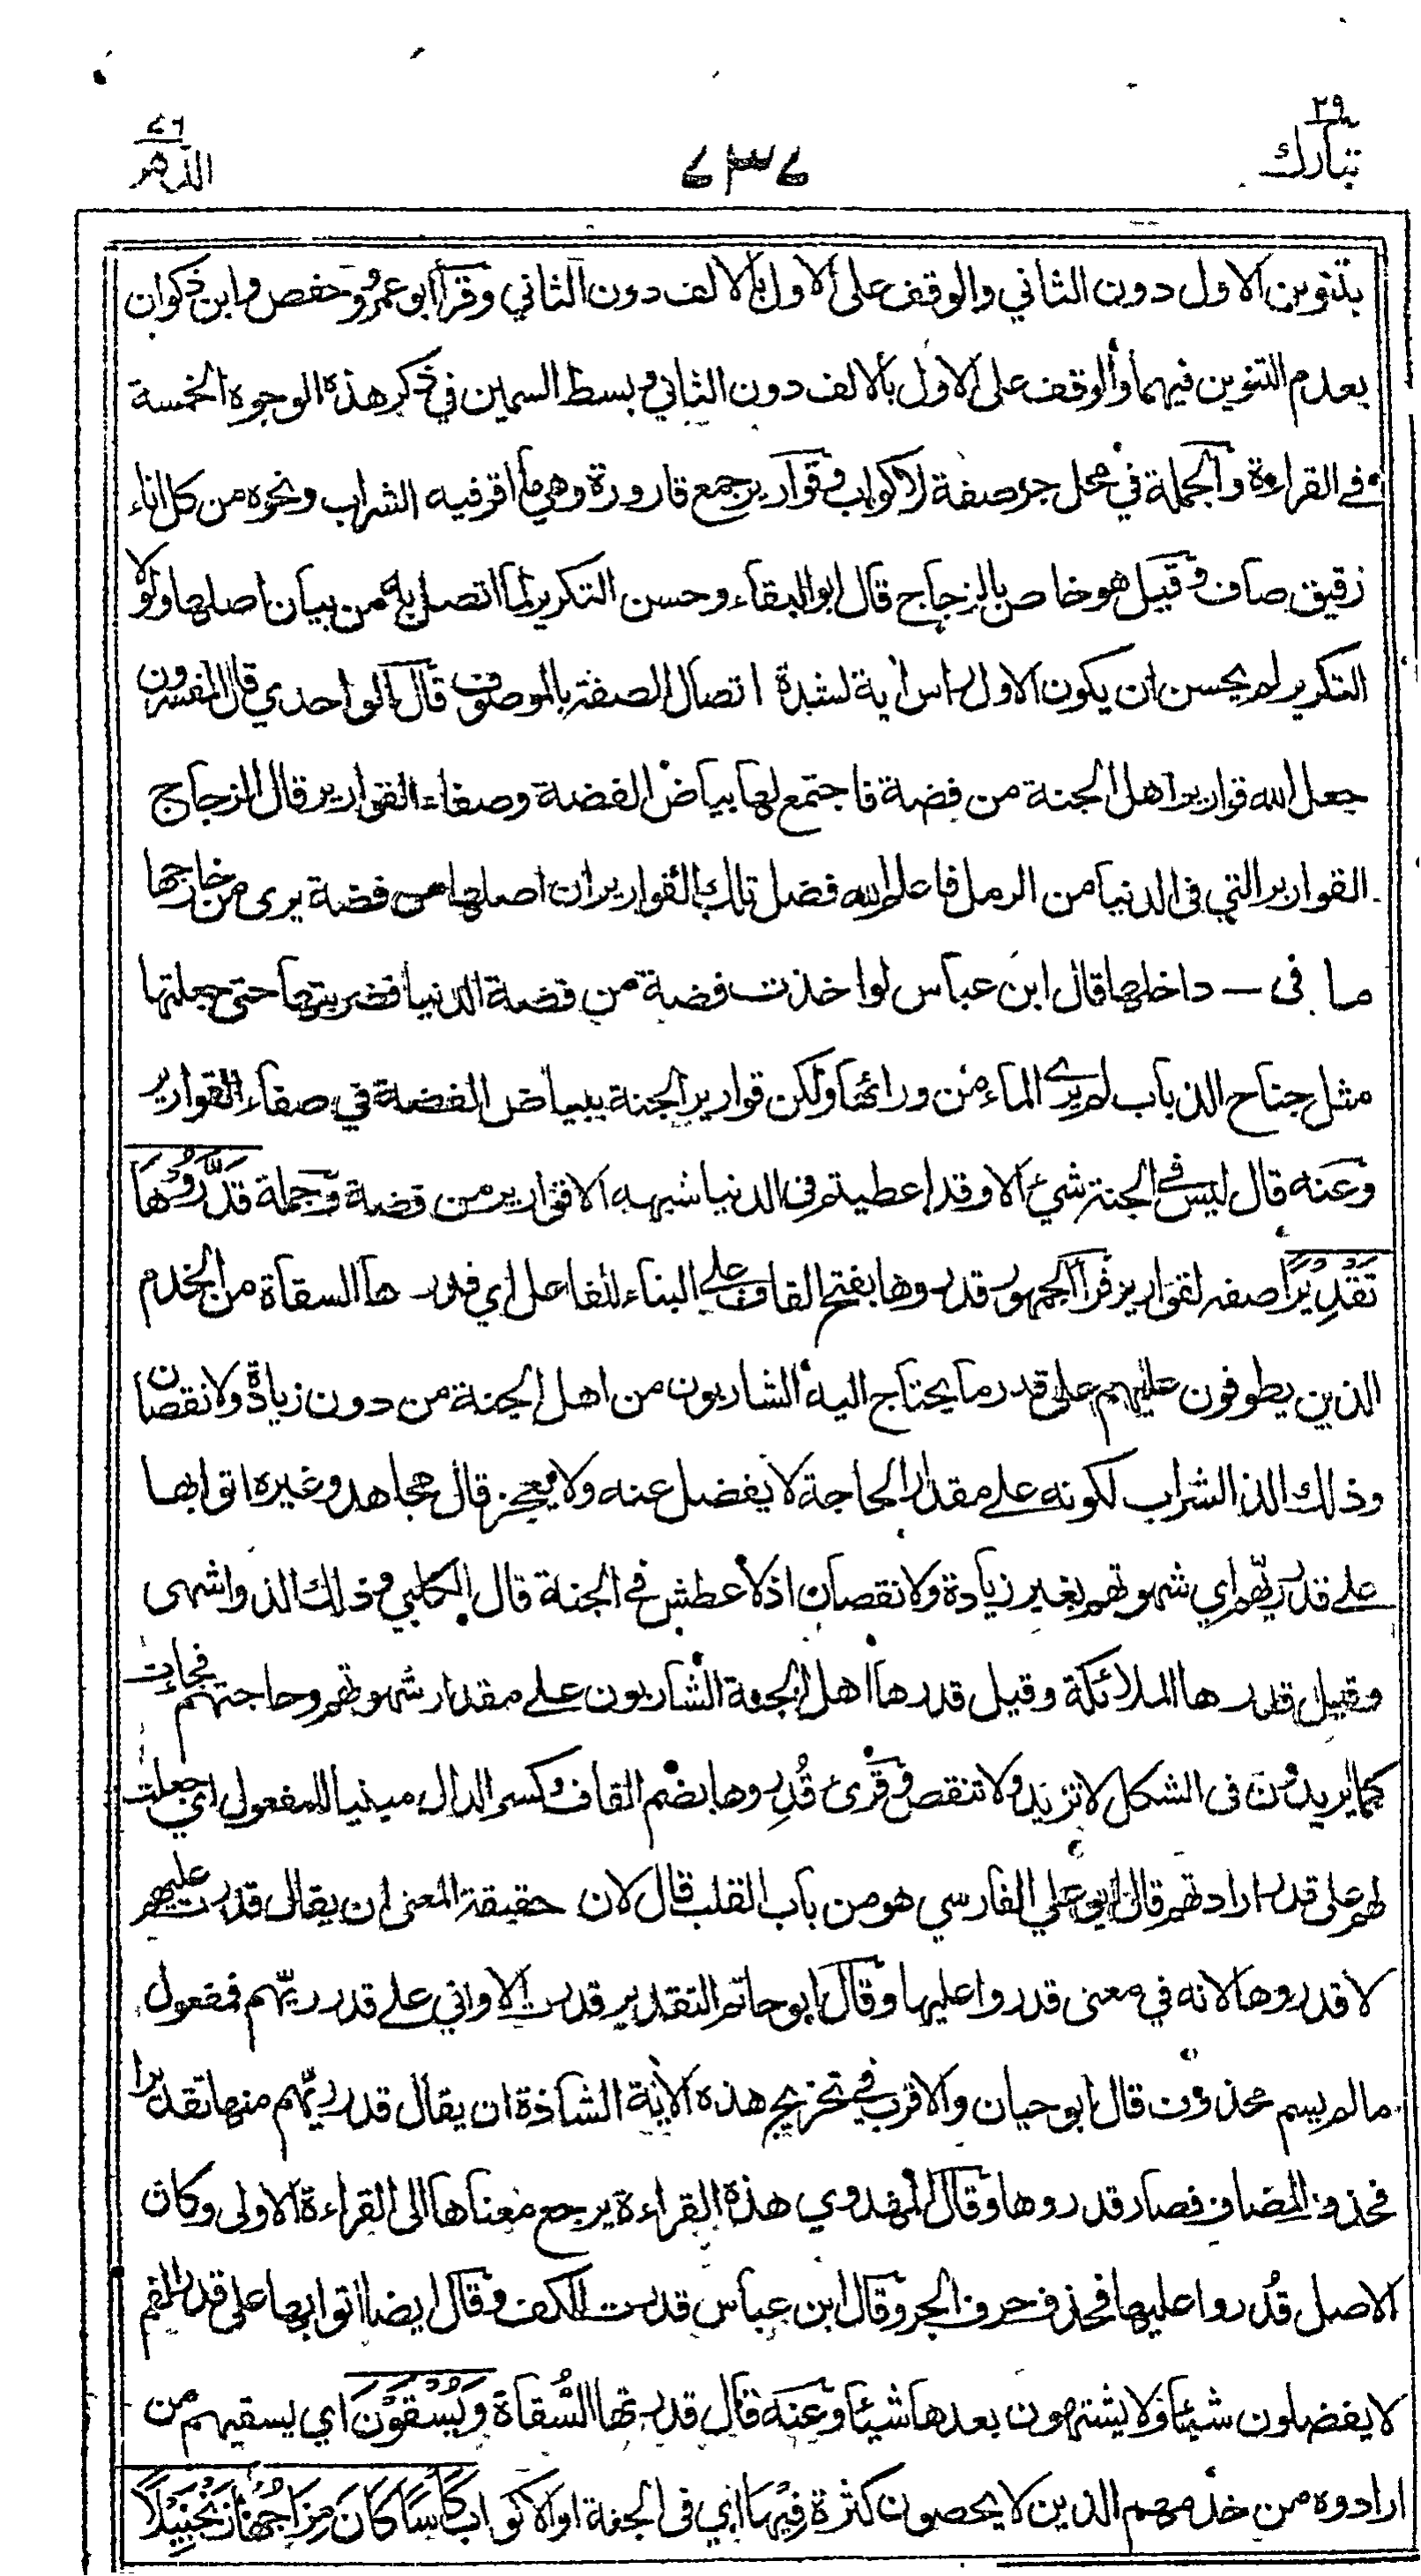 تبارك ٢٩
٤٣٤
الدهر ٧٦
بتنوين الاول دون الثاني والوقف على الاول بالالف دون الثاني وقرأ ابو عمرو وحفص وابن ذكوان
بعدم التنوين فيهما والوقف على الاول بالالف دون الثاني وبسط السمين في ذكر هذه الوجوه الخمسة
في القراءة والجملة في محل جر صفة لاكواب وقوارير جمع قارورة وهي ما اقر فيه الشراب ونحوه من كل اناء
رقيق صاف وقيل هو خاص بالزجاج قال ابو البقاء وحسن التكرير لما اتصل به من بيان اصلها ولولا
التكرير لم يحسن ان يكون الاول راس اية لشدة اتصال الصفة بالموصوف قال الواحدي قال المفسرون
جعل الله قوارير اهل الجنة من فضة فاجتمع لها بياض الفضة وصفاء القوارير قال الزجاج
القوارير التي فى الدنيا من الرمل فاعلم الله فضل تلك القوارير ان اصلها من فضة يرى من خارجها
ما فى داخلها قال ابن عباس لو اخذت فضة من فضة الدنيا فضربتها حتى جعلتها
مثل جناح الذباب لم يرى الماء من ورائها ولكن قوارير الجنة ببياض الفضة في صفاء القوارير
وعنه قال ليس فى الجنة شيء الا وقد اعطيتم فى الدنيا شبهه الا قوارير من فضة وجملة قَدَّرُوْهَا
تَقْدِيْرًا صفة لقوارير قرأ الجمهور قدروها بفتح القاف على البناء للفاعل اي قدرها السقاة من الخدم
الذين يطوفون عليهم على قدر ما يحتاج اليه الشاربون من اهل الجنة من دون زيادة ولا نقصان
وذلك الذ الشراب لكونه على مقدار الحاجة لا يفضل عنه ولا يعجز قال مجاهد وغيره اتوا بها
على قدر ريّهم اي شهوتهم بغير زيادة ولا نقصان اذ لا عطش في الجنة قال الكلبي وذلك الذ واشهى
وقيل قدرها الملائكة وقيل قدرها اهل الجنة الشاربون على مقدار شهوتهم وحاجتهم فجاءت
كما يريدون فى الشكل لا تزيد ولا تنقص وقرئ قُدِروها بضم القاف وكسر الدال مبنيا للمفعول اي جعلت
لهم على قدر ارادتهم قال ابو علي الفارسي هو من باب القلب قال لان حقيقة المعنى ان يقال قدرت عليهم
لا قدروها لانه في معنى قدروا عليها وقال ابو حاتم التقدير قدرت الاواني على قدر ريّهم فمفعول
ما لم يسم محذوف قال ابو حيان والاقرب في تخريج هذه الاية الشاذة ان يقال قدر ريّهم منها تقديرا
فحذف المضاف فصار قدروها وقال المهدوي هذه القراءة يرجع معناها الى القراءة الاولى وكان
الاصل قُدروا عليها فحذف حرف الجر وقال ابن عباس قدرت للكف وقال ايضا اتوا بها على قدر الفم
لا يفضلون شيئا ولا يشتهون بعدها شيئا وعنه قال قدرتها السُّقاة وَيُسْقَوْنَ اي يسقيهم من
ارادوه من خدمهم الذين لا يحصون كثرة فِيْهَا اي فى الجنة او الاكواب كَاْسًا كَانَ مِزَاجُهَا زَنْجَبِيْلًا